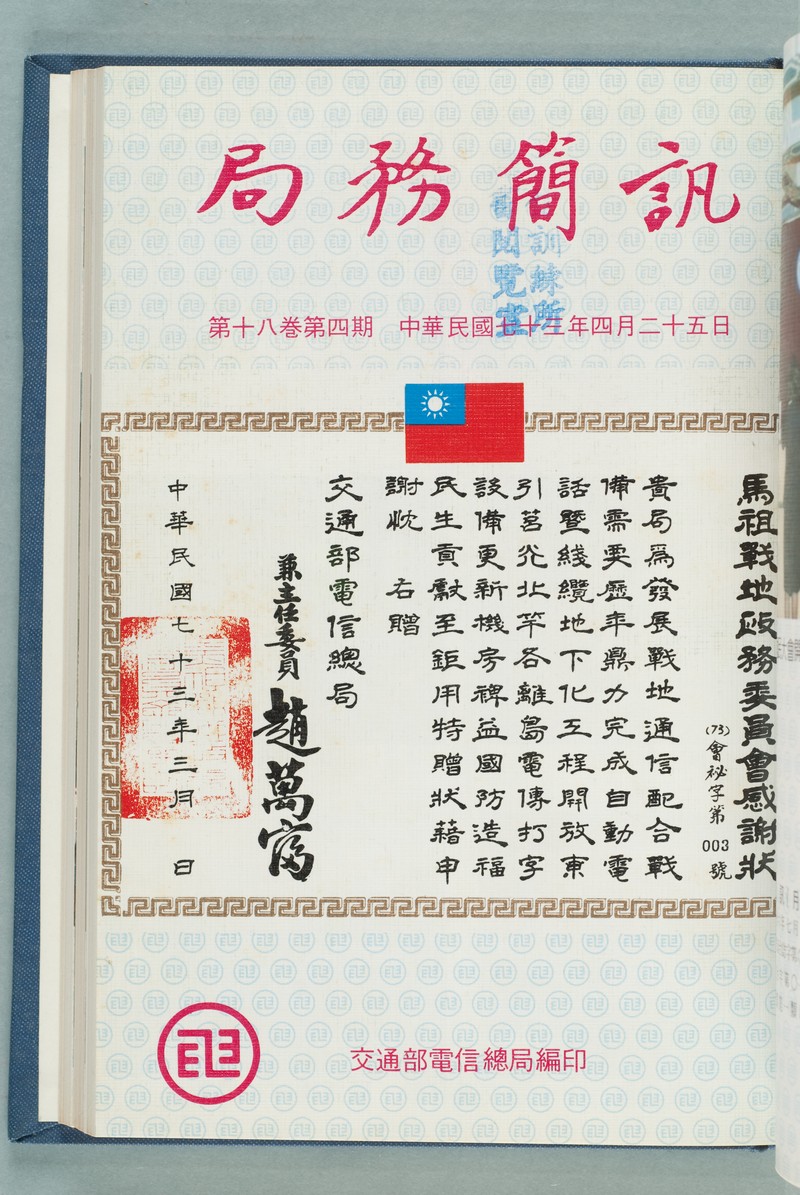 局務簡訊
訓練所
閱覽室
第十八卷第四期 中華民國七十三年四月二十五日
馬祖戰地政務委員會感謝狀
(73)會祕字第003號
貴局為發展戰地通信配合戰
備需要歷年鼎力完成自動電
話暨綫纜地下化工程開放東
引莒光北竿各離島電傳打字
設備更新機房裨益國防造福
民生貢獻至鉅用特贈狀藉申
謝忱 右贈
交通部電信總局
兼主任委員 趙萬富
中華民國七十三年三月 日
交通部電信總局編印